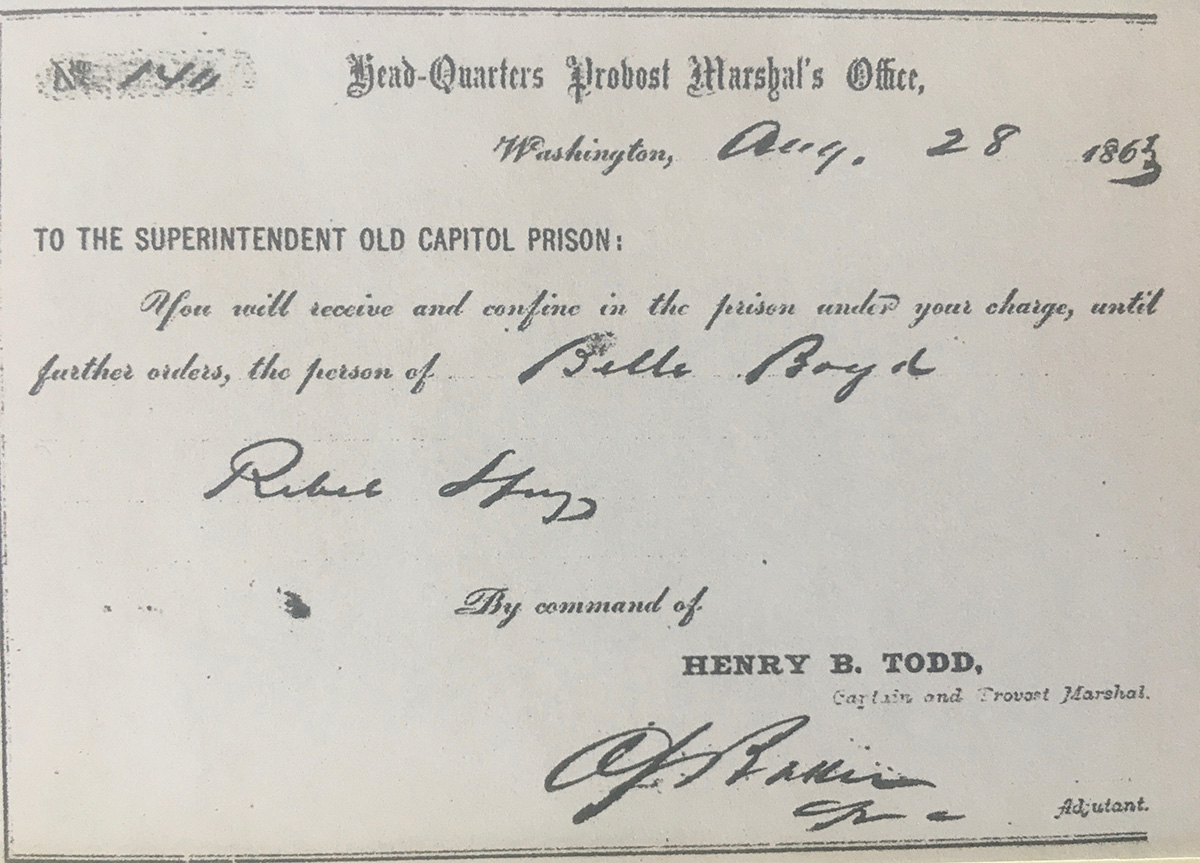 No 140 Head-Quarters Provost Marshal's Office,
Washington, Aug. 28 1863
TO THE SUPERINTENDENT OLD CAPITOL PRISON:
You will receive and confine in the prison under your charge, until
further orders, the person of Belle Boyd
Rebel Spy
By command of
HENRY B. TODD,
Captain and Provost Marshal.
Adjutant.